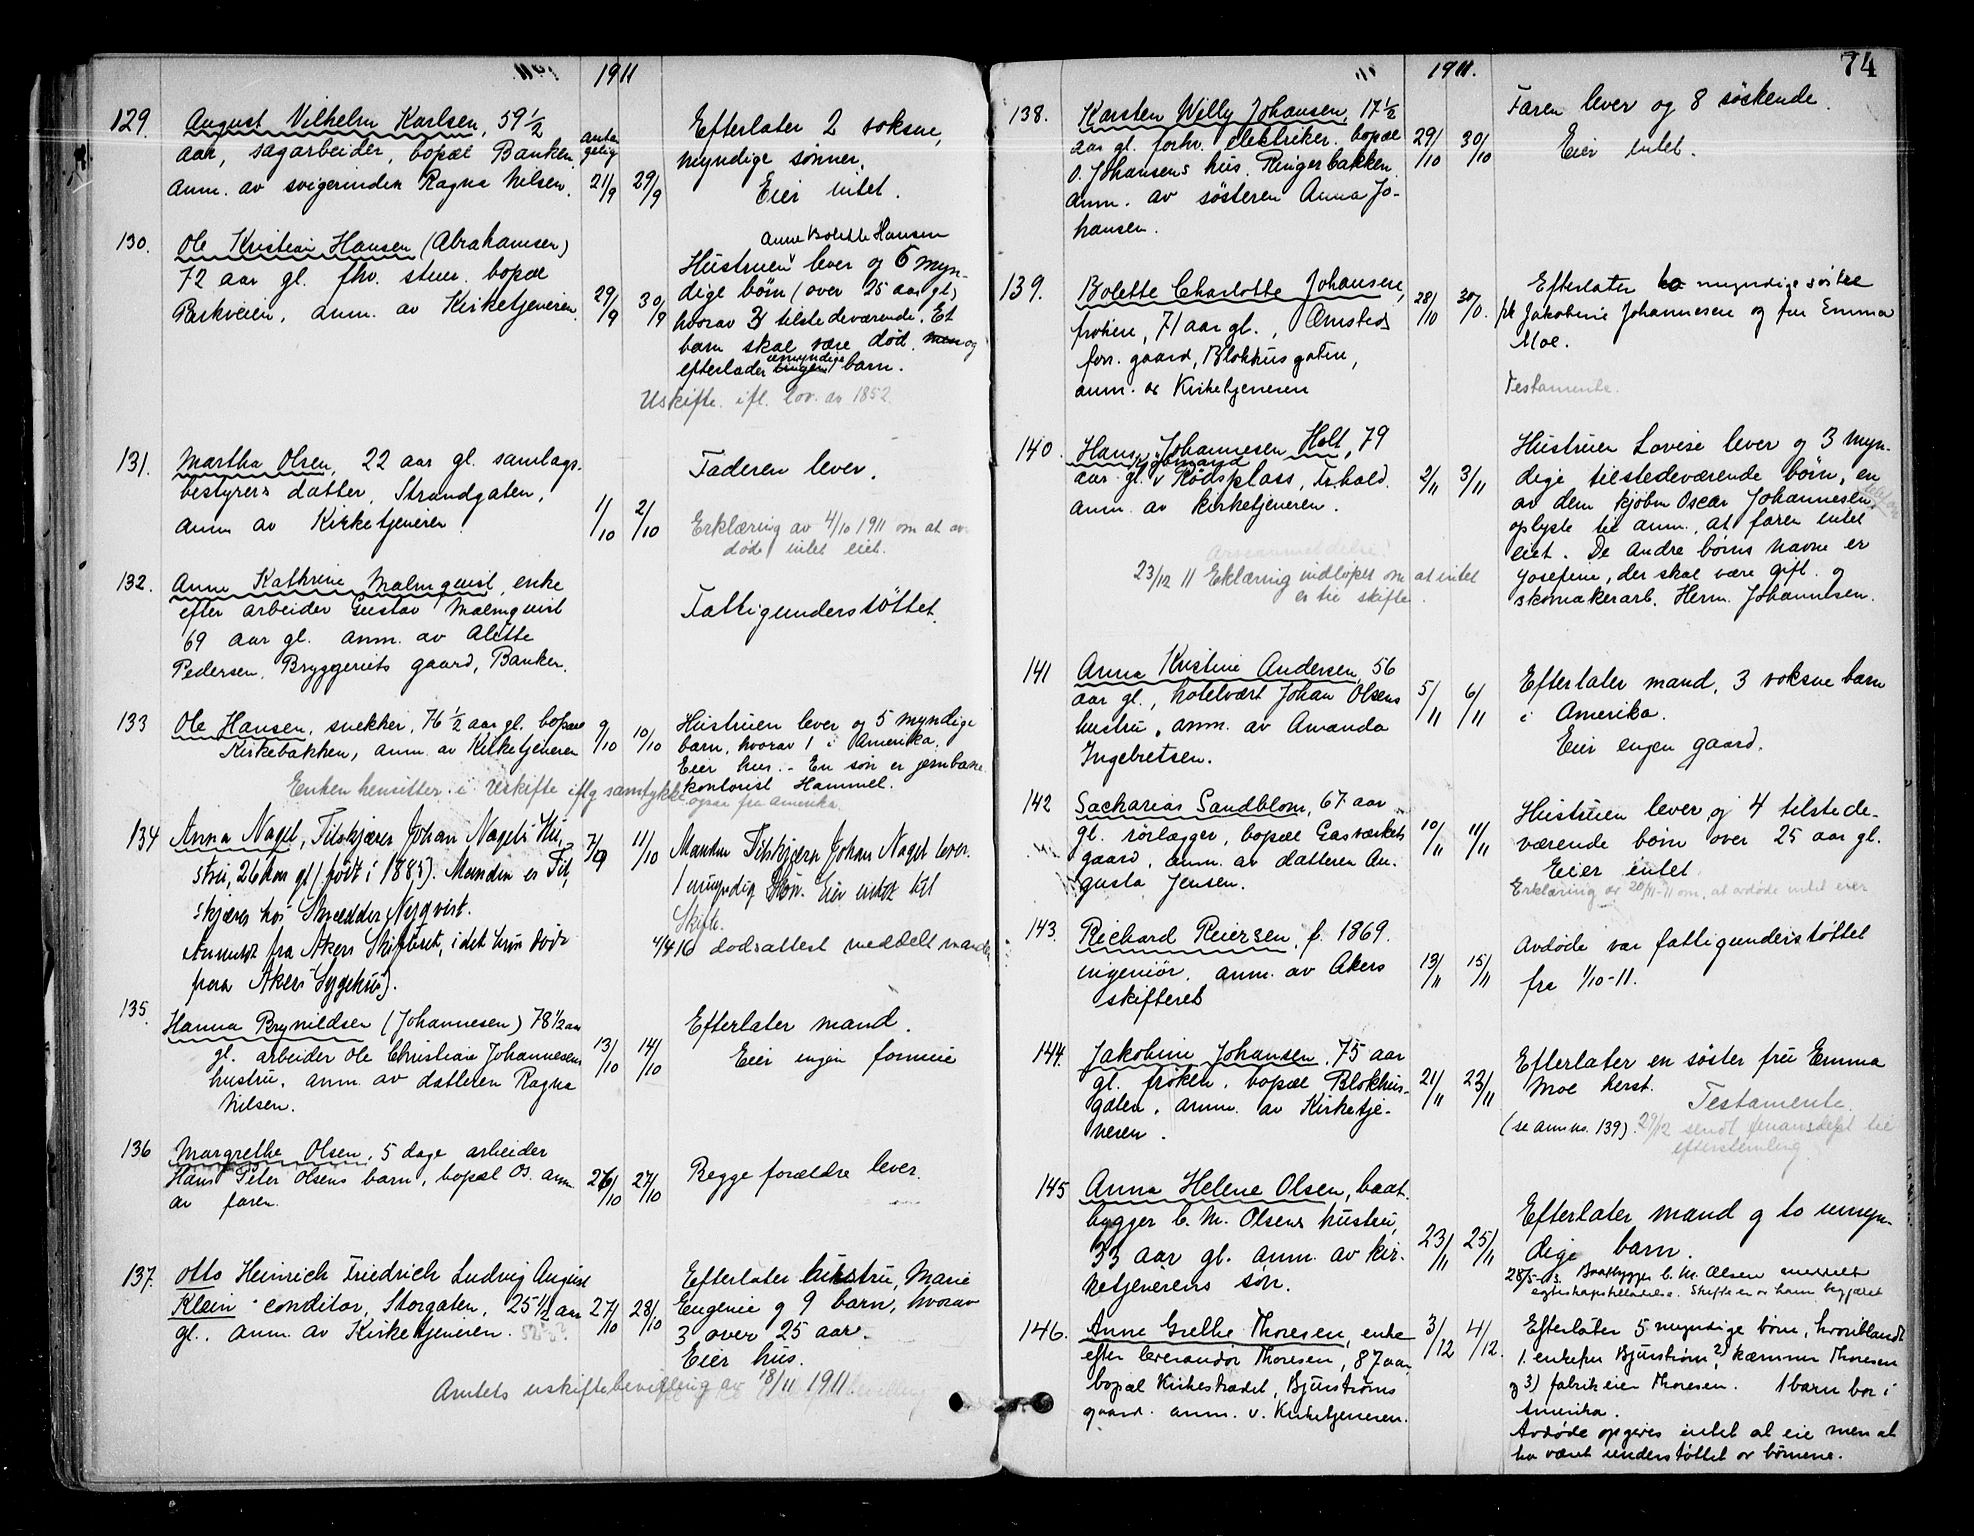 1911
129.
August Vilhelm Karlsen, 59 1/2
aar, sagarbeider, bopæl Banken
anm. av svigerinden Ragna Nilsen.
anta
gelig
21/9
29/9
Efterlater 2 voksne,
myndige sønner.
Eier intet.
130.
Ole Kristian Hansen (Abrahamsen)
72 aar gl. fhv. stuer. bopæl
Parkveien, anm. av Kirketjeneren.
29/9
30/9
Anne Bolette Hansen
Hustruen lever og 6 myn-
dige børn (over 25 aar gl)
hvorav 3 tilstedeværende. Et
barn skal være død. men og
efterlader ingen umyndige barn.
Uskifte ifl. lov. av 1852.
131.
Martha Olsen, 22 aar gl. samlags-
bestyrers datter, Strandgaten,
anm av Kirketjeneren
1/10
2/10
Faderen lever.
Erklæring av 4/10 1911 om at av-
døde intet eiet.
132.
Anne Kathrine Malmquist, enke
efter arbeider Gustav Malmquist
69 aar gl. anm. av Alette
Pedersen, Bryggeriets gaard, Banken.
Fattigunderstøttet.
133
Ole Hansen, snekker, 76 1/2 aar gl. bopæl
Kirkebakken, anm. av Kirketjeneren
9/10
10/10
Hustruen lever og 5 myndige
barn, hvorav 1 i Amerika.
Eier hus. - En søn er jernbane
kontorist Hammel.
Enken hensitter i Uskifte iflg samtykke
ogsaa fra Amerika.
134
Anna Nagel, Tilskjærer Johan Nagels Hu-
stru, 26 Aar gl (født i 1885). Manden er Til-
skjærer hos Skrædder Nyqvist.
Anmeldt fra Akers Skifteret, i det hun døde
paa Akers Sygehus).
7/9
11/10
Manden Tilskjærer Johan Nagel lever.
1 umyndig Søn. Eier intet til
Skifte.
4/4 16 dødsattest meddelt manden
135.
Hanna Brynildsen (Johannesen) 78 1/2 aar
gl. arbeider Ole Christian Johannesens
hustru, anm. av datteren Ragna
Nilsen.
13/10
14/10
Efterlater mand.
Eier ingen formue
136
Margrethe Olsen, 5 dage arbeider
Hans Peter Olsens barn, bopæl Os. anm
av faren.
26/10
27/10
Begge forældre lever.
137.
Otto Heinrich Friedrich Ludvig August
Klein - conditor, Storgaten, 25 1/2 aar
gl. anm. av Kirketjeneren.
27/10
28/10
Efterlater hustru, Marie
Eugenie og 9 barn, hvorav
3 over 25 aar.
Eier hus.
Amtets uskiftebevilling av 18/11 1911
74
1911.
138.
Karsten Willy Johansen, 17 1/2
aar gl. forhv. elektriker. bopæl
O. Johansens hus, Ringerbakken.
anm. av søsteren Anna Jo-
hansen.
29/10
30/10
Faren lever og 8 søskende.
Eier intet.
139.
Bolette Charlotte Johansen,
frøken, 71 aar gl., Ømsteds
forr. gaard, Blokhusgaten,
anm. av Kirketjeneren
28/10
30/10
Efterlater to myndige søstre
frk Jakobine Johannesen og fru Emma
Moe.
Testamente.
140.
Hans Johannesen Holt, 79
sjømand
aar gl. v Rødsplass, Tr.hald.
anm. av kirketjeneren.
2/11
3/11
Hustruen Lovise lever og 3 myn-
dige tilstedeværende børn, en
av dem kjøbm Oscar Johannesen,
oplyste til anm. at faren intet
eiet. De andre børns navne er
Josefine, der skal være gift og
skomakerarb. Herm. Johannesen.
23/12 11 Erklæring indløpet om at intet
er til skifte.
141
Anna Kristine Andersen, 56
aar gl., hotelvært Johan Olsens
hustru, anm. av Amanda
Ingebretsen.
5/11
6/11
Efterlater mand, 3 voksne barn
i Amerika.
Eier engen gaard.
142
Sacharias Sandblom, 67 aar
gl. rørlægger, bopæl Gasværkets
gaard, anm. av datteren Au-
gusta Jensen.
10/11
11/11
Hustruen lever og 4 tilstede-
værende børn over 25 aar gl.
Eier intet.
Erklæring av 20/11-11 om, at avdøde intet eier
143.
Richard Reiersen, f. 1869.
ingeniør, anm. av Akers
skifteret
13/11
15/11
Avdøde var fattigunderstøttet
fra 1/10-11.
144.
Jakobine Johansen, 75 aar
gl. frøken, bopæl Blokhus-
gaten, anm. av Kirketje-
neren.
21/11
23/11
Efterlater en søster fru Emma
Moe herst.
Testamente.
(se anm no. 139). 29/12 sendt finansdept til
efterstemling.
145
Anna Helene Olsen, baat-
bygger C. M. Olsens hustru,
33 aar gl. anm. av kir-
ketjenerens søn.
23/11
25/11
Efterlater mand og to umyn-
dige barn.
28/5-13. Baatbygger C. M. Olsen meddelt
egteskapstilladelse. Skifte er av ham begjæret
146.
Anne Grethe Thoresen, enke
efter leverandør Thoresen, 87 aar,
bopæl Kirkestrædet, Bjurstrøms
gaard. anm. v. Kirketjeneren.
3/12
4/12.
Efterlater 5 myndige børn, hvoriblandt
1. enkefru Bjurstrøm, 2) kæmner Thoresen
og 3) fabrikeier Thoresen. 1 barn bor i
Amerika.
Avdøde opgives intet at eie men at
ha været understøttet av børnene.